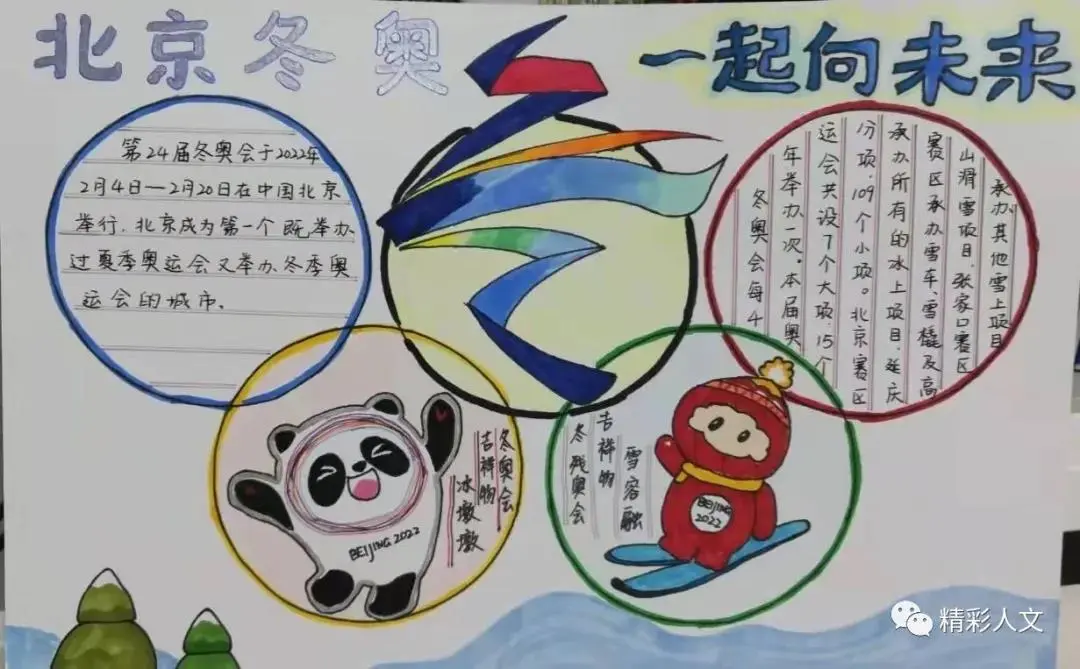 北京冬奥
一起向未来
第24届冬奥会于2022年
2月4日—2月20日在中国北京
举行,北京成为第一个既举办
过夏季奥运会又举办冬季奥
运会的城市。
冬奥会每4
年举办一次。本届奥
运会共设7个大项,15个
分项,109个小项。北京赛区
承办所有的冰上项目,延庆
赛区承办雪车、雪橇及高
山滑雪项目,张家口赛区
承办其他雪上项目
冬奥会
吉祥物
冰墩墩
BEIJING 2022
冬残奥会
吉祥物
雪容融
BEIJING
2022
精彩人文